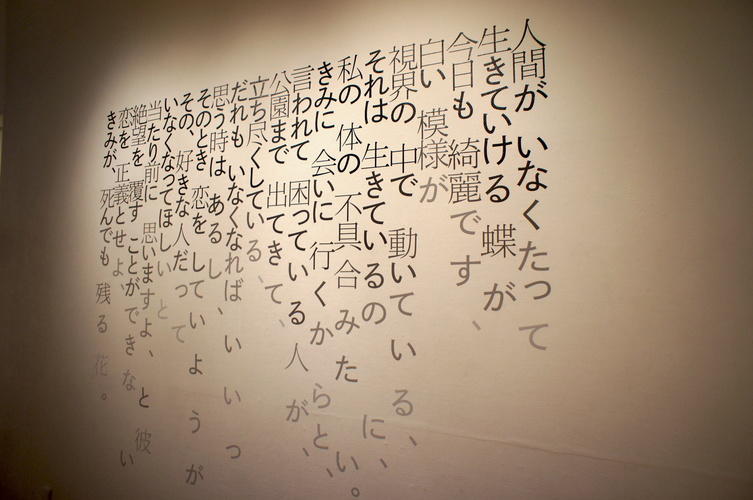 人間が いなくたって
生きていける 蝶が
今日も 綺麗です、
白い 模様が
視界の 中で 動いている、
それは 生きているのに、
私の 体の 不具合みたい。
きみに 会いに 行くからと、
言われて 困っている人が、
公園まで 出てきて、
立ち尽くしている、
だれも いなくなれば、いいっ
思う時は あるし、
そのとき 恋を していようが
その、好きな人だって
いなくなってほしいと
当たり前に 思いますよ、と彼
絶望を 覆す ことができない
恋を 正義とせよ、
きみが、死んでも 残る花。